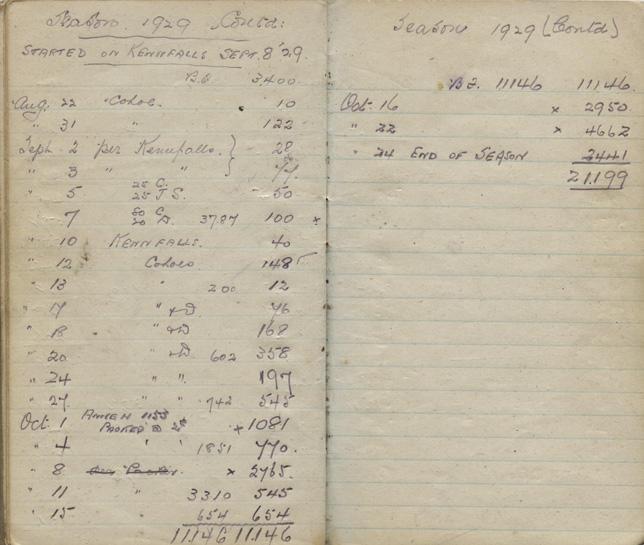 Season 1929 Contd:
STARTED ON KENNFALLS SEPT. 8 '29.
B.F. 3,400
Aug. 22 Cohoe. 10
" 31 " 122
Sept. 2 per Kennfalls. } 28
" 3 " " }
" 5 25 C. 25 J S. 50
7 80 C 20 D. 3787 100 x
" 10 KENNFALLS. 40
" 12 Cohoes 148
" 13 " 200 12
" 17 " +D 46
" 18 " +D 168
" 20 " +D 602 358
" 24 " " 197
" 27 " 742 545
Oct. 1 1155 PACKED x 1081
" 4 " " 1851 770.
" 8 x 2765.
" 11 " 3310 545
" 15 " 654 654
11.146 11.146
Season 1929 (Contd)
B F. 11146 11146.
Oct. 16 x 2950
" 22 x 4662
" 24 END OF SEASON 2441
21.199